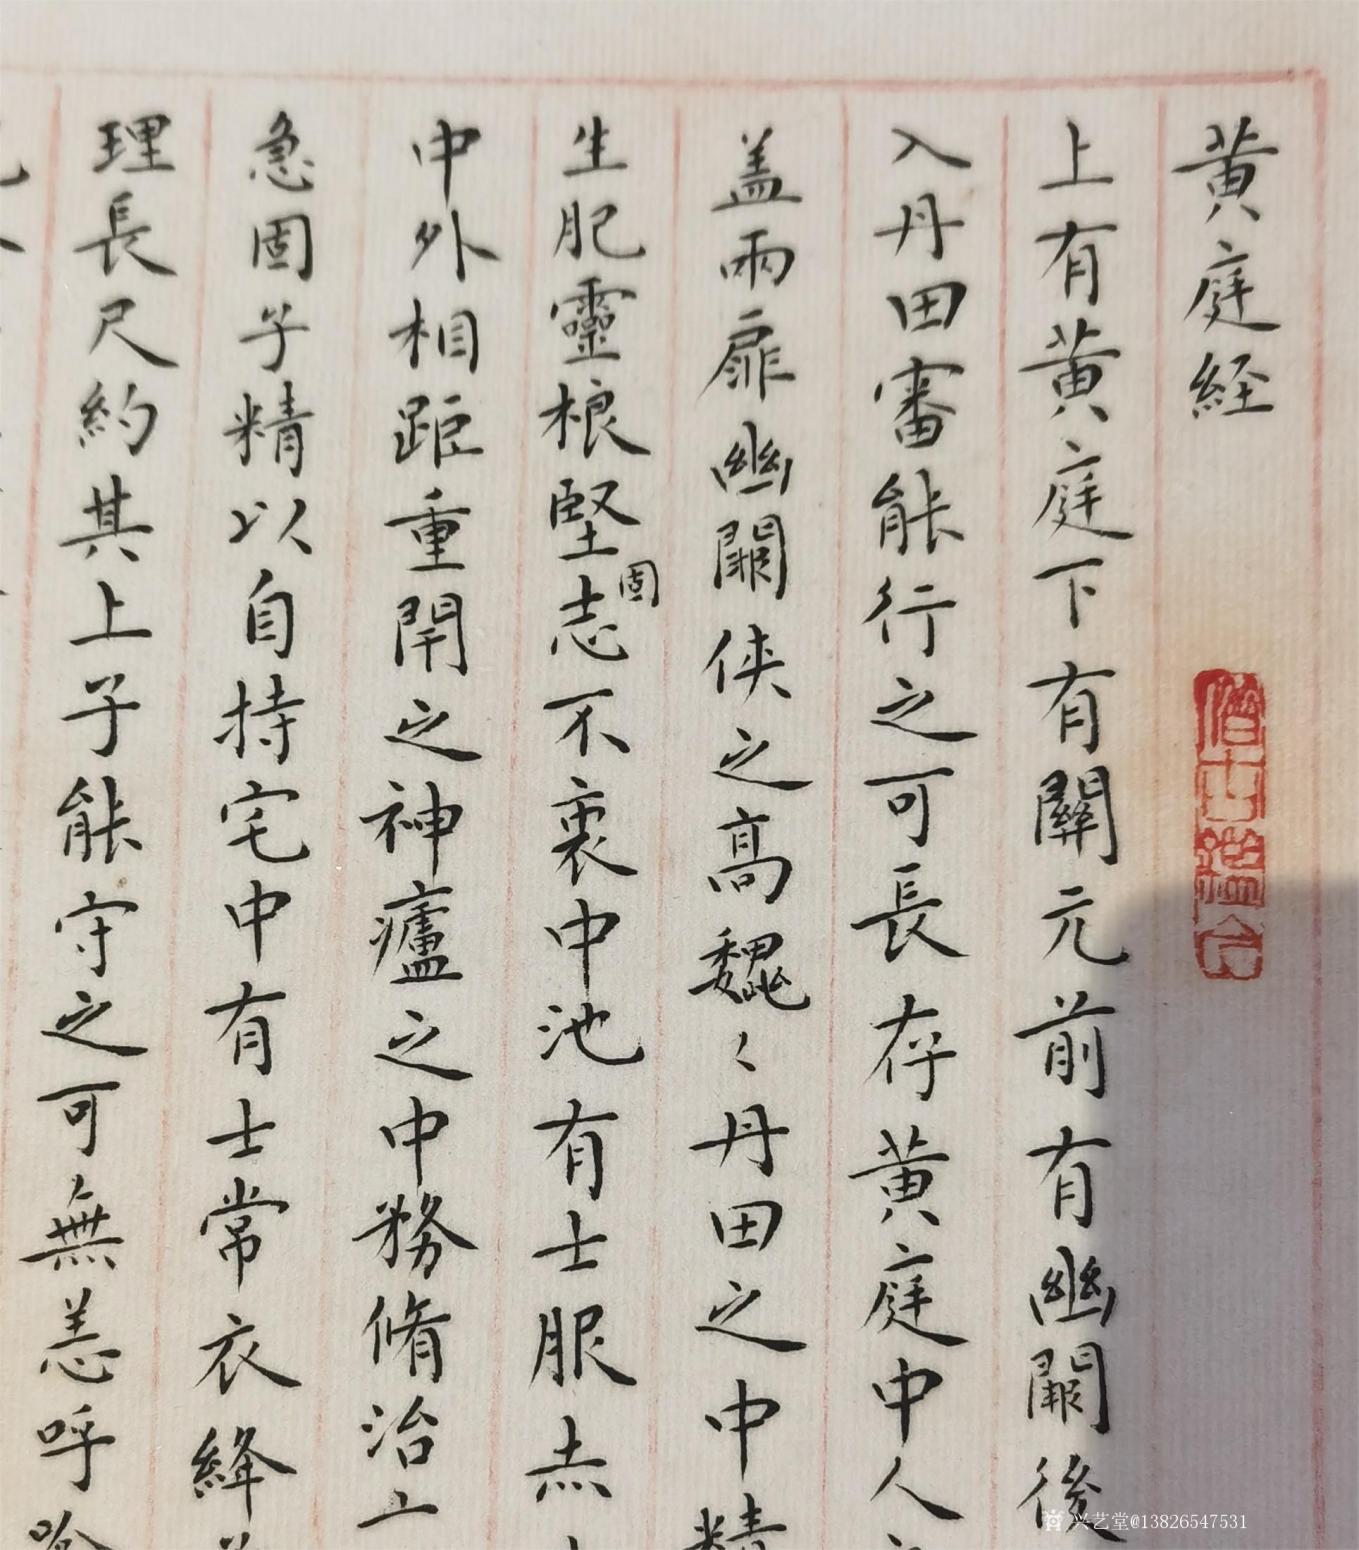 黄庭経
上有黄庭下有關元前有幽闕後
入丹田審能行之可長存黄庭中人
盖兩扉幽闕侠之高魏〻丹田之中精
生肥靈根堅固志不衰中池有士服赤
中外相距重閈之神廬之中務脩治
急固子精以自持宅中有士常衣絳
理長尺約其上子能守之可無恙呼
兴艺堂@13826547531